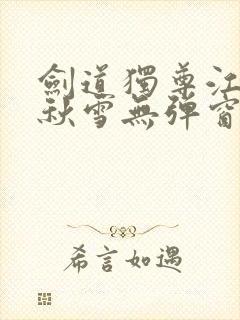 劍道獨尊江
秋雪無彈窗
希言如遇